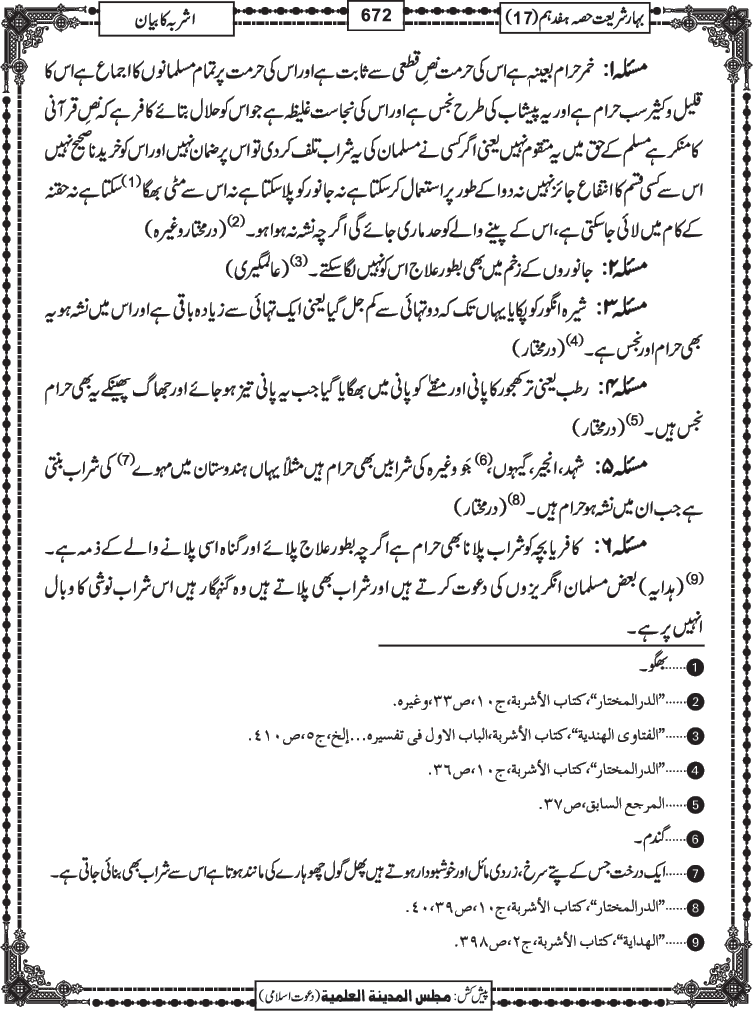 بہار شریعت حصہ ہفدہم (17)
672
اشربہ کا بیان
مسئلہ ۱: خمر حرام بعینہٖ ہے اس کی حرمت نص قطعی سے ثابت ہے اور اس کی حرمت پر تمام مسلمانوں کا اجماع ہے اس کا
قلیل و کثیر سب حرام ہے اور یہ پیشاب کی طرح نجس ہے اور اس کی نجاست غلیظہ ہے جو اس کو حلال بتائے کافر ہے کہ نص قرآنی
کا منکر ہے مسلم کے حق میں یہ متقوم نہیں یعنی اگر کسی نے مسلمان کی یہ شراب تلف کردی تو اس پر ضمان نہیں اور اس کو خریدنا صحیح نہیں
اس سے کسی قسم کا انتفاع جائز نہیں نہ دوا کے طور پر استعمال کرسکتا ہے نہ جانور کو پلا سکتا ہے نہ اس سے مٹی بھگا(1) سکتا ہے نہ حقنہ
کے کام میں لائی جاسکتی ہے، اس کے پینے والے کو حد ماری جائے گی اگرچہ نشہ نہ ہوا ہو۔(2) (درمختار وغیرہ)
مسئلہ ۲: جانوروں کے زخم میں بھی بطور علاج اس کو نہیں لگا سکتے۔(3) (عالمگیری)
مسئلہ ۳: شیرہ انگور کو پکایا یہاں تک کہ دو تہائی سے کم جل گیا یعنی ایک تہائی سے زیادہ باقی ہے اور اس میں نشہ ہو یہ
بھی حرام اور نجس ہے۔(4) (درمختار)
مسئلہ ۴: رطب یعنی تر کھجور کا پانی اور منقے کو پانی میں بھگایا گیا جب یہ پانی تیز ہوجائے اور جھاگ پھینکے یہ بھی حرام
نجس ہیں۔(5) (درمختار)
مسئلہ ۵: شہد، انجیر، گیہوں،(6) جَو وغیرہ کی شرابیں بھی حرام ہیں مثلاً یہاں ہندوستان میں مہوے(7) کی شراب بنتی
ہے جب ان میں نشہ ہو حرام ہیں۔(8) (درمختار)
مسئلہ ۶: کافر یا بچہ کو شراب پلانا بھی حرام ہے اگرچہ بطور علاج پلائے اور گناہ اسی پلانے والے کے ذمہ ہے۔
(9) (ہدایہ) بعض مسلمان انگریزوں کی دعوت کرتے ہیں اور شراب بھی پلاتے ہیں وہ گنہگار ہیں اس شراب نوشی کا وبال
انہیں پر ہے۔
1......بھگو۔
2......”الدرالمختار“، کتاب الأشربة، ج۱۰، ص۳۳، وغیرہ.
3......”الفتاوی الھندیة“، کتاب الأشربة، الباب الاول فی تفسیرہ...إلخ، ج۵، ص۴۱۰.
4......”الدرالمختار“، کتاب الأشربة، ج۱۰، ص۳۶.
5......المرجع السابق، ص۳۷.
6......گندم۔
7......ایک درخت جس کے پتے سرخ، زردی مائل اور خوشبودار ہوتے ہیں پھل گول چھوہارے کی مانند ہوتا ہے اس سے شراب بھی بنائی جاتی ہے۔
8......”الدرالمختار“، کتاب الأشربة، ج۱۰، ص۳۹، ۴۰.
9......”الھدایة“، کتاب الأشربة، ج۲، ص۳۹۸.
پیش کش: مجلس المدینة العلمیة (دعوت اسلامی)